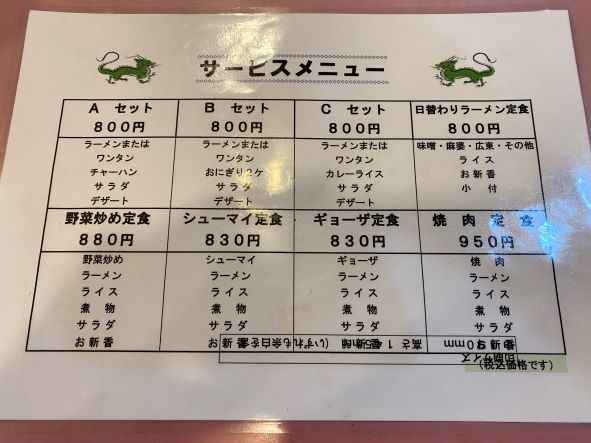 サービスメニュー
A セット
800円
ラーメンまたは
ワンタン
チャーハン
サラダ
デザート
B セット
800円
ラーメンまたは
ワンタン
おにぎり2ケ
サラダ
デザート
C セット
800円
ラーメンまたは
ワンタン
カレーライス
サラダ
デザート
日替わりラーメン定食
800円
味噌・麻婆・広東・その他
ライス
お新香
小 付
野菜炒め定食
880円
野菜炒め
ラーメン
ライス
煮 物
サラダ
お新香
シューマイ定食
830円
シューマイ
ラーメン
ライス
煮 物
サラダ
ギョーザ定食
830円
ギョーザ
ラーメン
ライス
煮 物
サラダ
焼 肉 定 食
950円
焼 肉
ラーメン
ライス
煮 物
サラダ
(税込価格です)
印刷サイズ